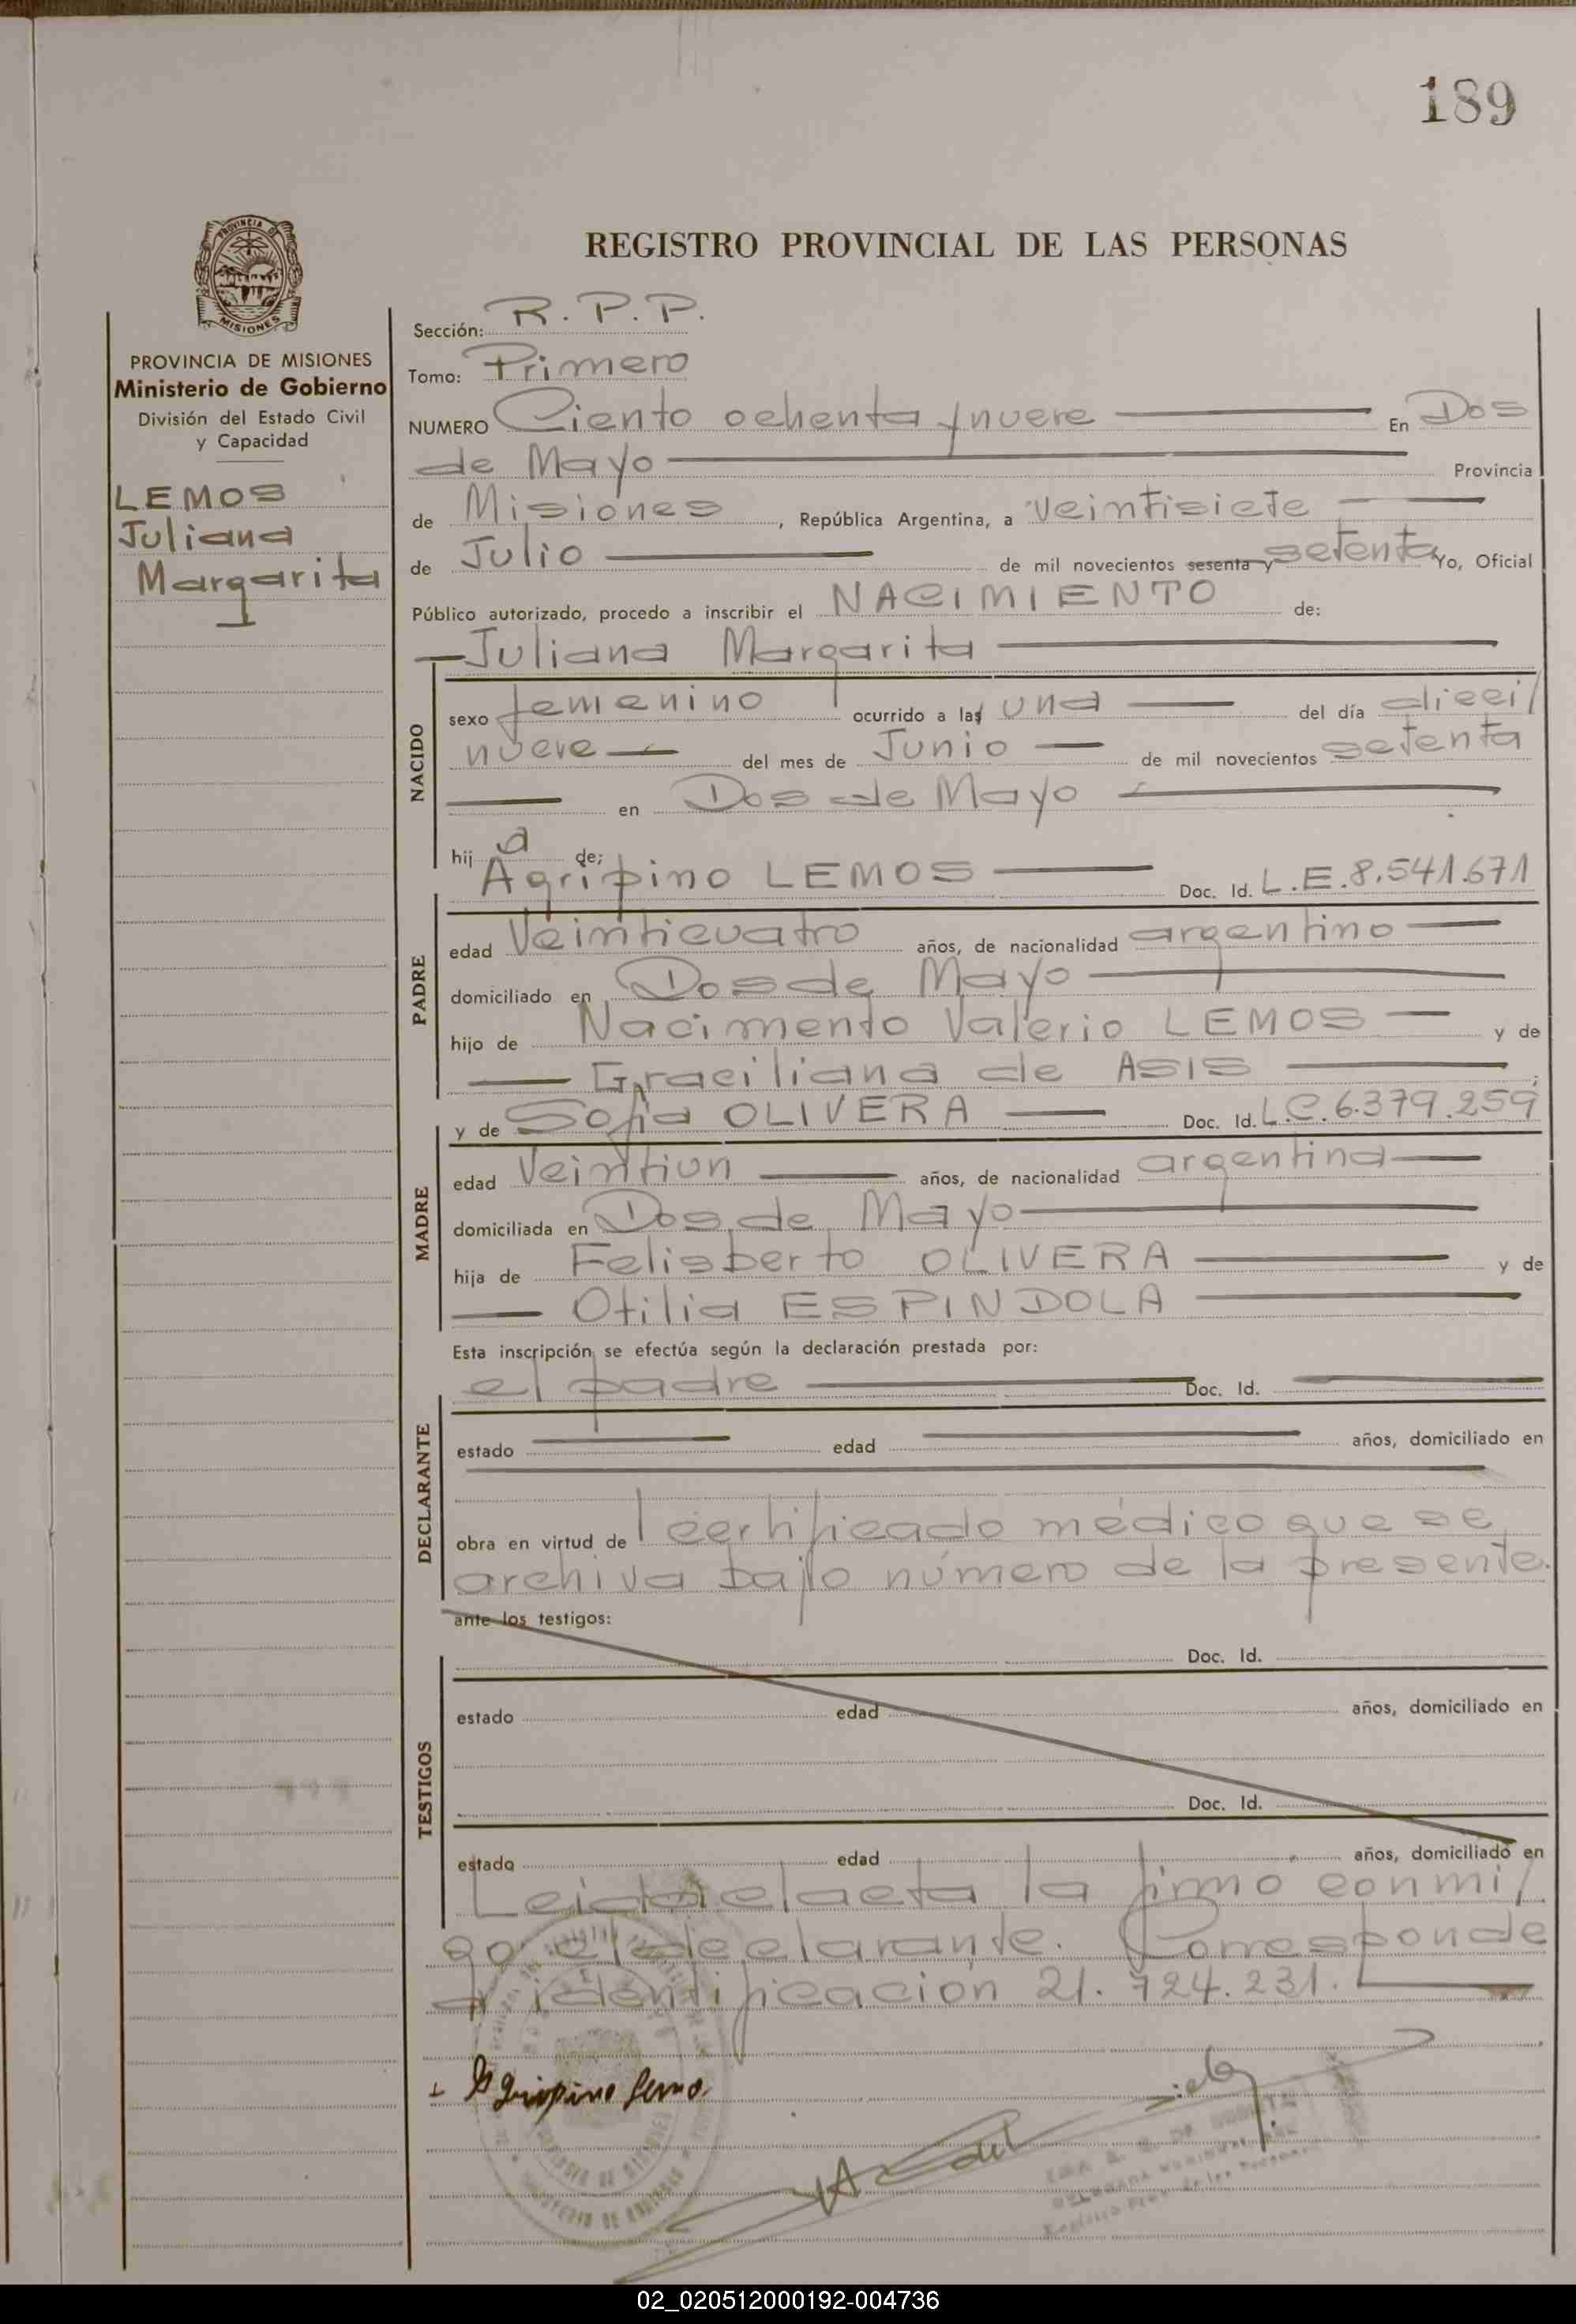 189
PROVINCIA DE
MISIONES
PROVINCIA DE MISIONES
Ministerio de Gobierno
División del Estado Civil
y Capacidad
LEMOS
Juliana
Margarita
REGISTRO PROVINCIAL DE LAS PERSONAS
Sección: R.P.P.
Tomo: Primero
NUMERO Ciento ochenta y nueve En Dos
de Mayo Provincia
de Misiones, República Argentina, a Veintisiete
de Julio de mil novecientos sesenta y setenta Yo, Oficial
Público autorizado, procedo a inscribir el NACIMIENTO de:
Juliana Margarita
NACIDO
sexo femenino ocurrido a las una del día dieci/
nueve del mes de Junio de mil novecientos setenta
en Dos de Mayo
hija de:
Agripino LEMOS Doc. Id. L.E.8.541.671
PADRE
edad Veinticuatro años, de nacionalidad argentino
domiciliado en Dos de Mayo
hijo de Nacimento Valerio LEMOS y de
Graciliana de ASIS
y de Sofia OLIVERA Doc. Id. L.C.6.379.259
MADRE
edad Veintiun años, de nacionalidad argentina
domiciliada en Dos de Mayo
hija de Felisberto OLIVERA y de
Otilia ESPINDOLA
Esta inscripción se efectúa según la declaración prestada por:
el padre Doc. Id.
DECLARANTE
estado edad años, domiciliado en
obra en virtud de certificado médico que se
archiva bajo número de la presente.
ante los testigos:
TESTIGOS
Doc. Id.
estado edad años, domiciliado en
Doc. Id.
estado edad años, domiciliado en
Leida el acta la firmo conmi/
go el declarante. Corresponde
a identificación 21.724.231.
Agripino Lemo
02_020512000192-004736